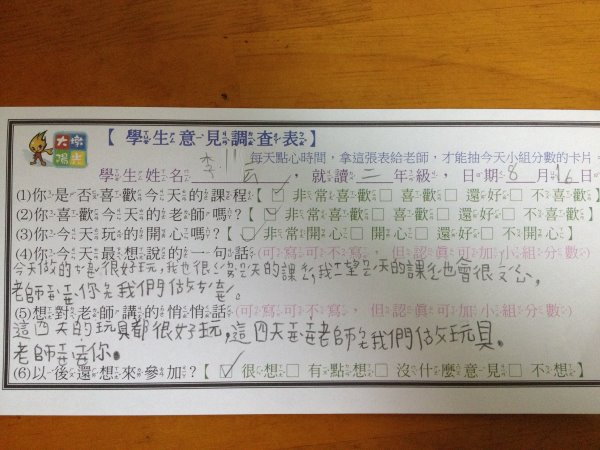 大墩陽光
【學生意見調查表】
每天點心時間，拿這張表給老師，才能抽今天小組分數的卡片
學生姓名 李 ，就讀 三 年級，日期 8 月 16 日
(1)你是否喜歡今天的課程【☑ 非常喜歡 □ 喜歡 □ 還好 □ 不喜歡
(2)你喜歡今天的老師嗎?【☑ 非常喜歡 □ 喜歡 □ 還好 □ 不喜歡
(3)你今天玩的開心嗎?【☑ 非常開心 □ 開心 □ 還好 □ 不開心
(4)你今天最想說的一句話(可寫可不寫，但認真可加小組分數)
今天做的 很好玩,我也很 天的課ㄔㄥ,我 望 天的課ㄔㄥ也會很 ,
老師 你 我們做 。
(5)想對老師講的悄悄話(可寫可不寫，但認真可加小組分數)
這四天的玩具都很好玩,這四天 老師 我們做玩具。
老師 你。
(6)以後還想來參加?【☑ 很想 □ 有點想 □ 沒什麼意見 □ 不想